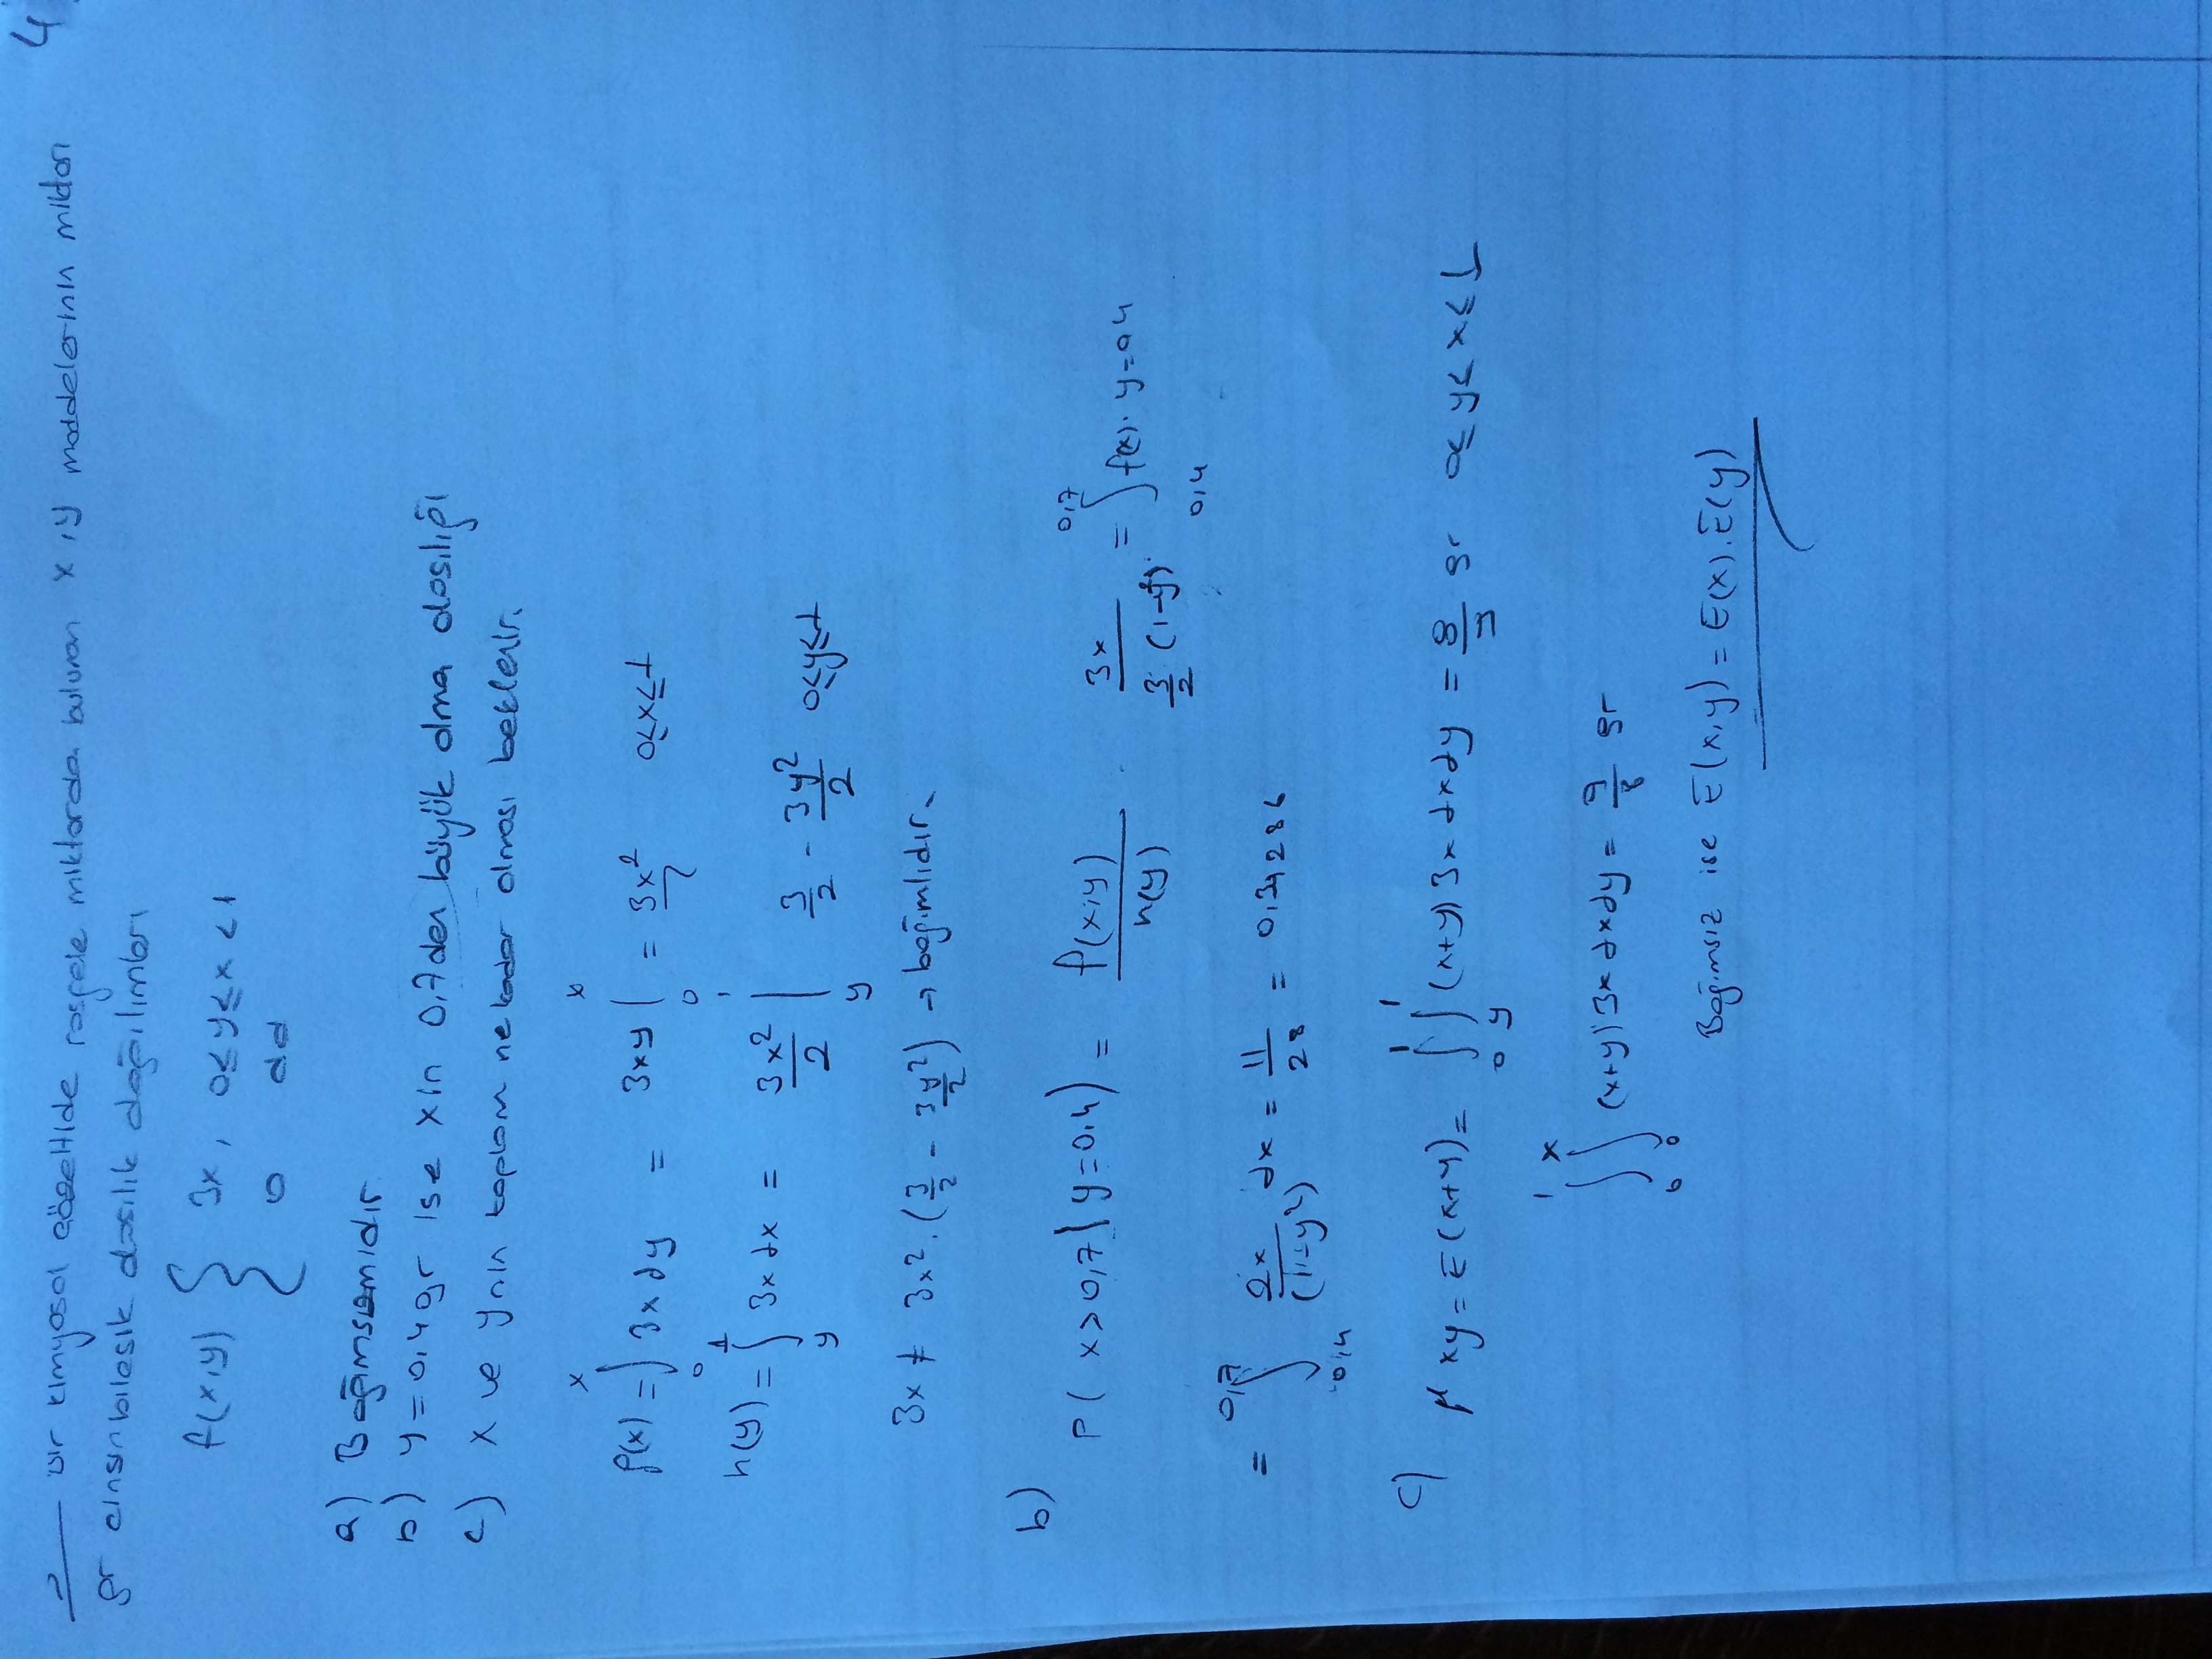 4
2 Bir kimyasal çözeltide rasgele miktarda bulunan x,y maddelerinin miktarı
gr cinsinbileşik dasılık dağılımları
f(x,y) { 3x, 0≤y≤x<1
0 dd
a) Bağımsızmıdır
b) y=0,4gr ise x in 0,7den büyük olma dasılığı
c) x ve y nin toplam ne kadar olması beklenir.
f(x) = ∫₀ˣ 3x dy = 3xy |₀ˣ = 3x² 0≤x≤1
h(y) = ∫_y^1 3x dx = 3x²/2 |_y^1 3/2 - 3y²/2 0≤y≤1
3x ≠ 3x².(3/2 - 3y²/2) → bağımlıdır.
b) P(x>0,7|y=0,4) = f(x,y)/h(y) 3x / 3/2.(1-y²). = ∫_{0,4}^{0,7} f(x).y=04
= ∫_{0,4}^{0,7} 2x/(1-y²) dx = 11/28 = 0,39286
c) μ xy = E(x+y) = ∫₀¹ ∫_y^1 (x+y)3x dx dy = 9/8 gr 0≤y≤x≤1
∫₀¹ ∫₀ˣ (x+y)3x dx dy = 9/8 gr
Bağımsız ise E(x,y) = E(x).E(y)